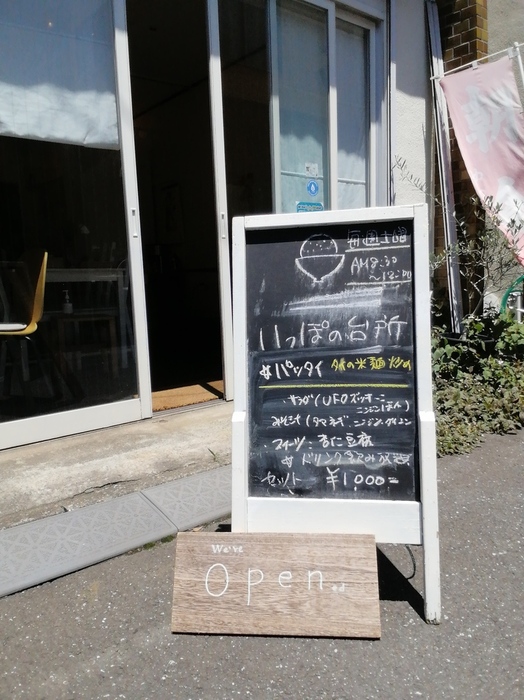 毎週土曜
AM8:30
いっぽの台所
パッタイ 米麺炒め
サラダ(UFOズッキーニ
ニンジン
みそ汁(タマネギ ニンジン ダイコン
スイーツ:杏仁豆腐
ドリンク飲み放題
セット ¥1,000-
We're
Open